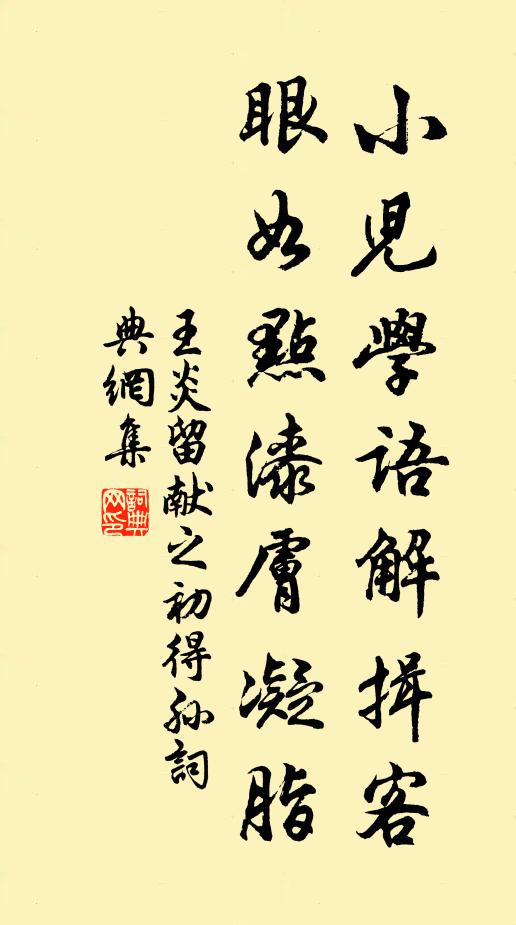 小兒學語解揖客
眼如點漆膚凝脂
王炎留献之初得孙詞
典網集
詞典
网印